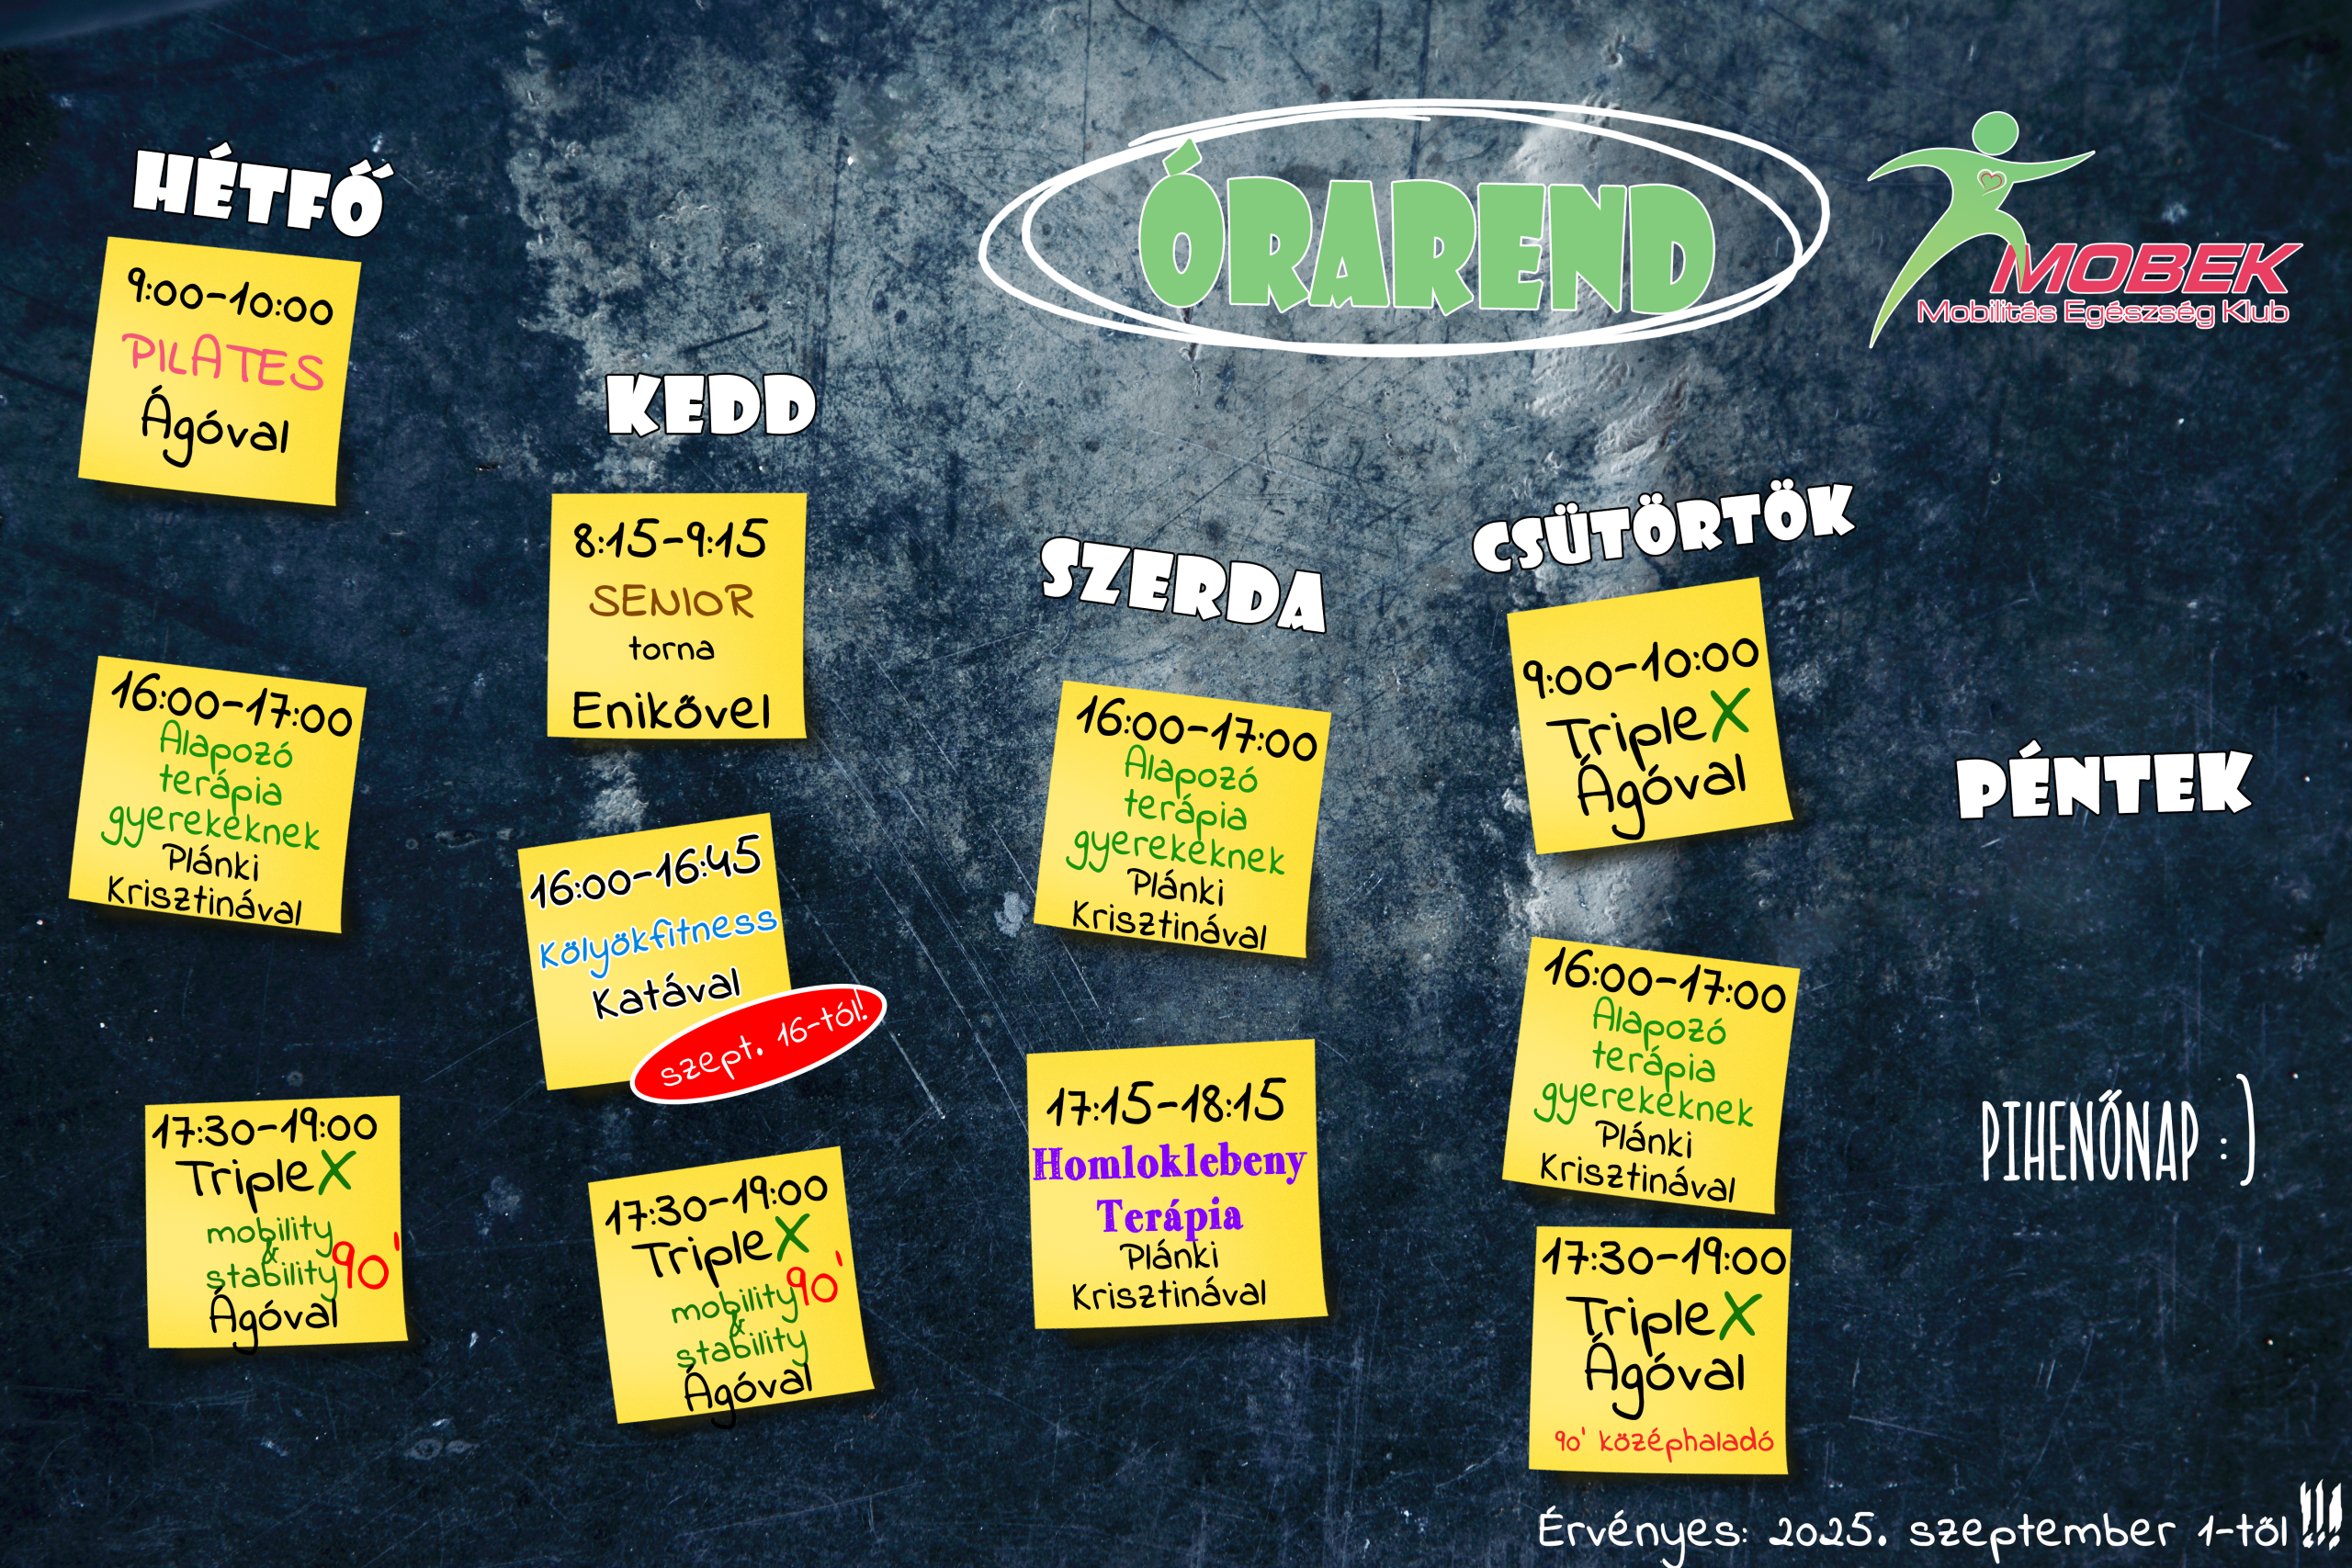 ÓRAREND
MOBEK
Mobilitás Egészség Klub
HÉTFŐ
9:00-10:00
PILATES
Ágóval
16:00-17:00
Alapozó
terápia
gyerekeknek
Plánki
Krisztinával
17:30-19:00
TripleX
mobility
&
stability 90'
Ágóval
KEDD
8:15-9:15
SENIOR
torna
Enikővel
16:00-16:45
Kölyökfitness
Katával
szept. 16-tól!
17:30-19:00
TripleX
mobility 90'
&
stability
Ágóval
SZERDA
16:00-17:00
Alapozó
terápia
gyerekeknek
Plánki
Krisztinával
17:15-18:15
Homloklebeny
Terápia
Plánki
Krisztinával
CSÜTÖRTÖK
9:00-10:00
TripleX
Ágóval
16:00-17:00
Alapozó
terápia
gyerekeknek
Plánki
Krisztinával
17:30-19:00
TripleX
Ágóval
90' középhaladó
PÉNTEK
PIHENŐNAP :)
Érvényes: 2025. szeptember 1-től !!!